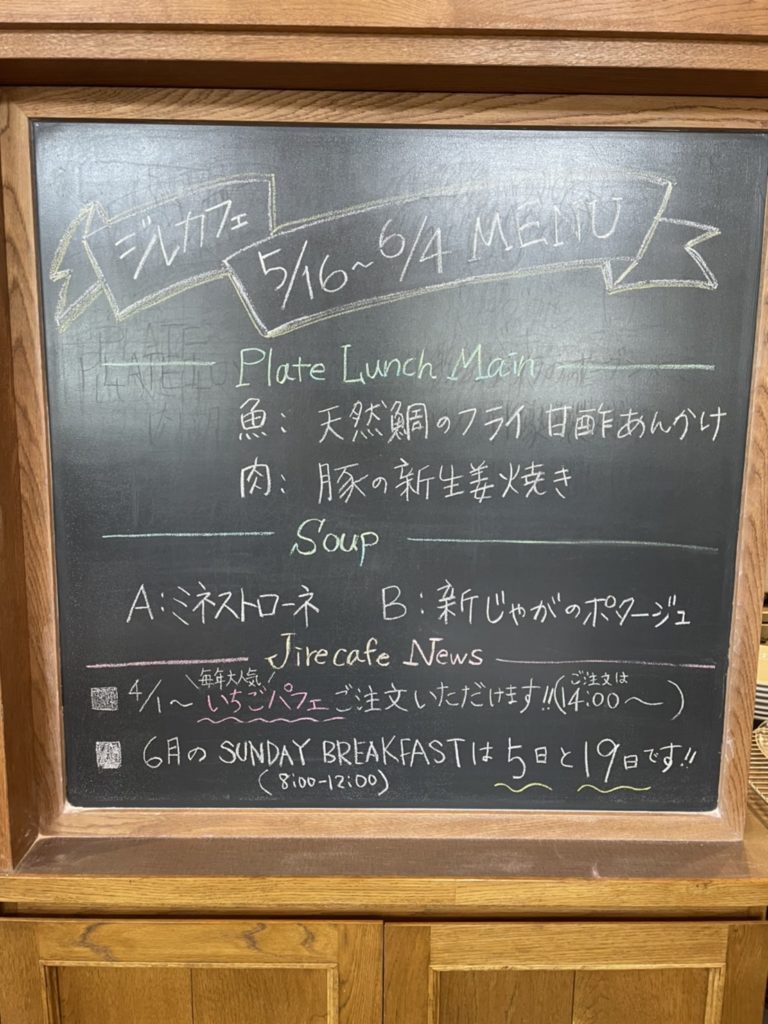 ジルカフェ 5/16~6/4 MENU
Plate Lunch Main
魚: 天然鯛のフライ 甘酢あんかけ
肉: 豚の新生姜焼き
Soup
A:ミネストローネ B:新じゃがのポタージュ
Jirecafe News
\毎年大人気/
4/1~ いちごパフェご注文いただけます!!(ご注文は14:00~)
6月の SUNDAY BREAKFASTは 5日と19日です!!
(8:00-12:00)